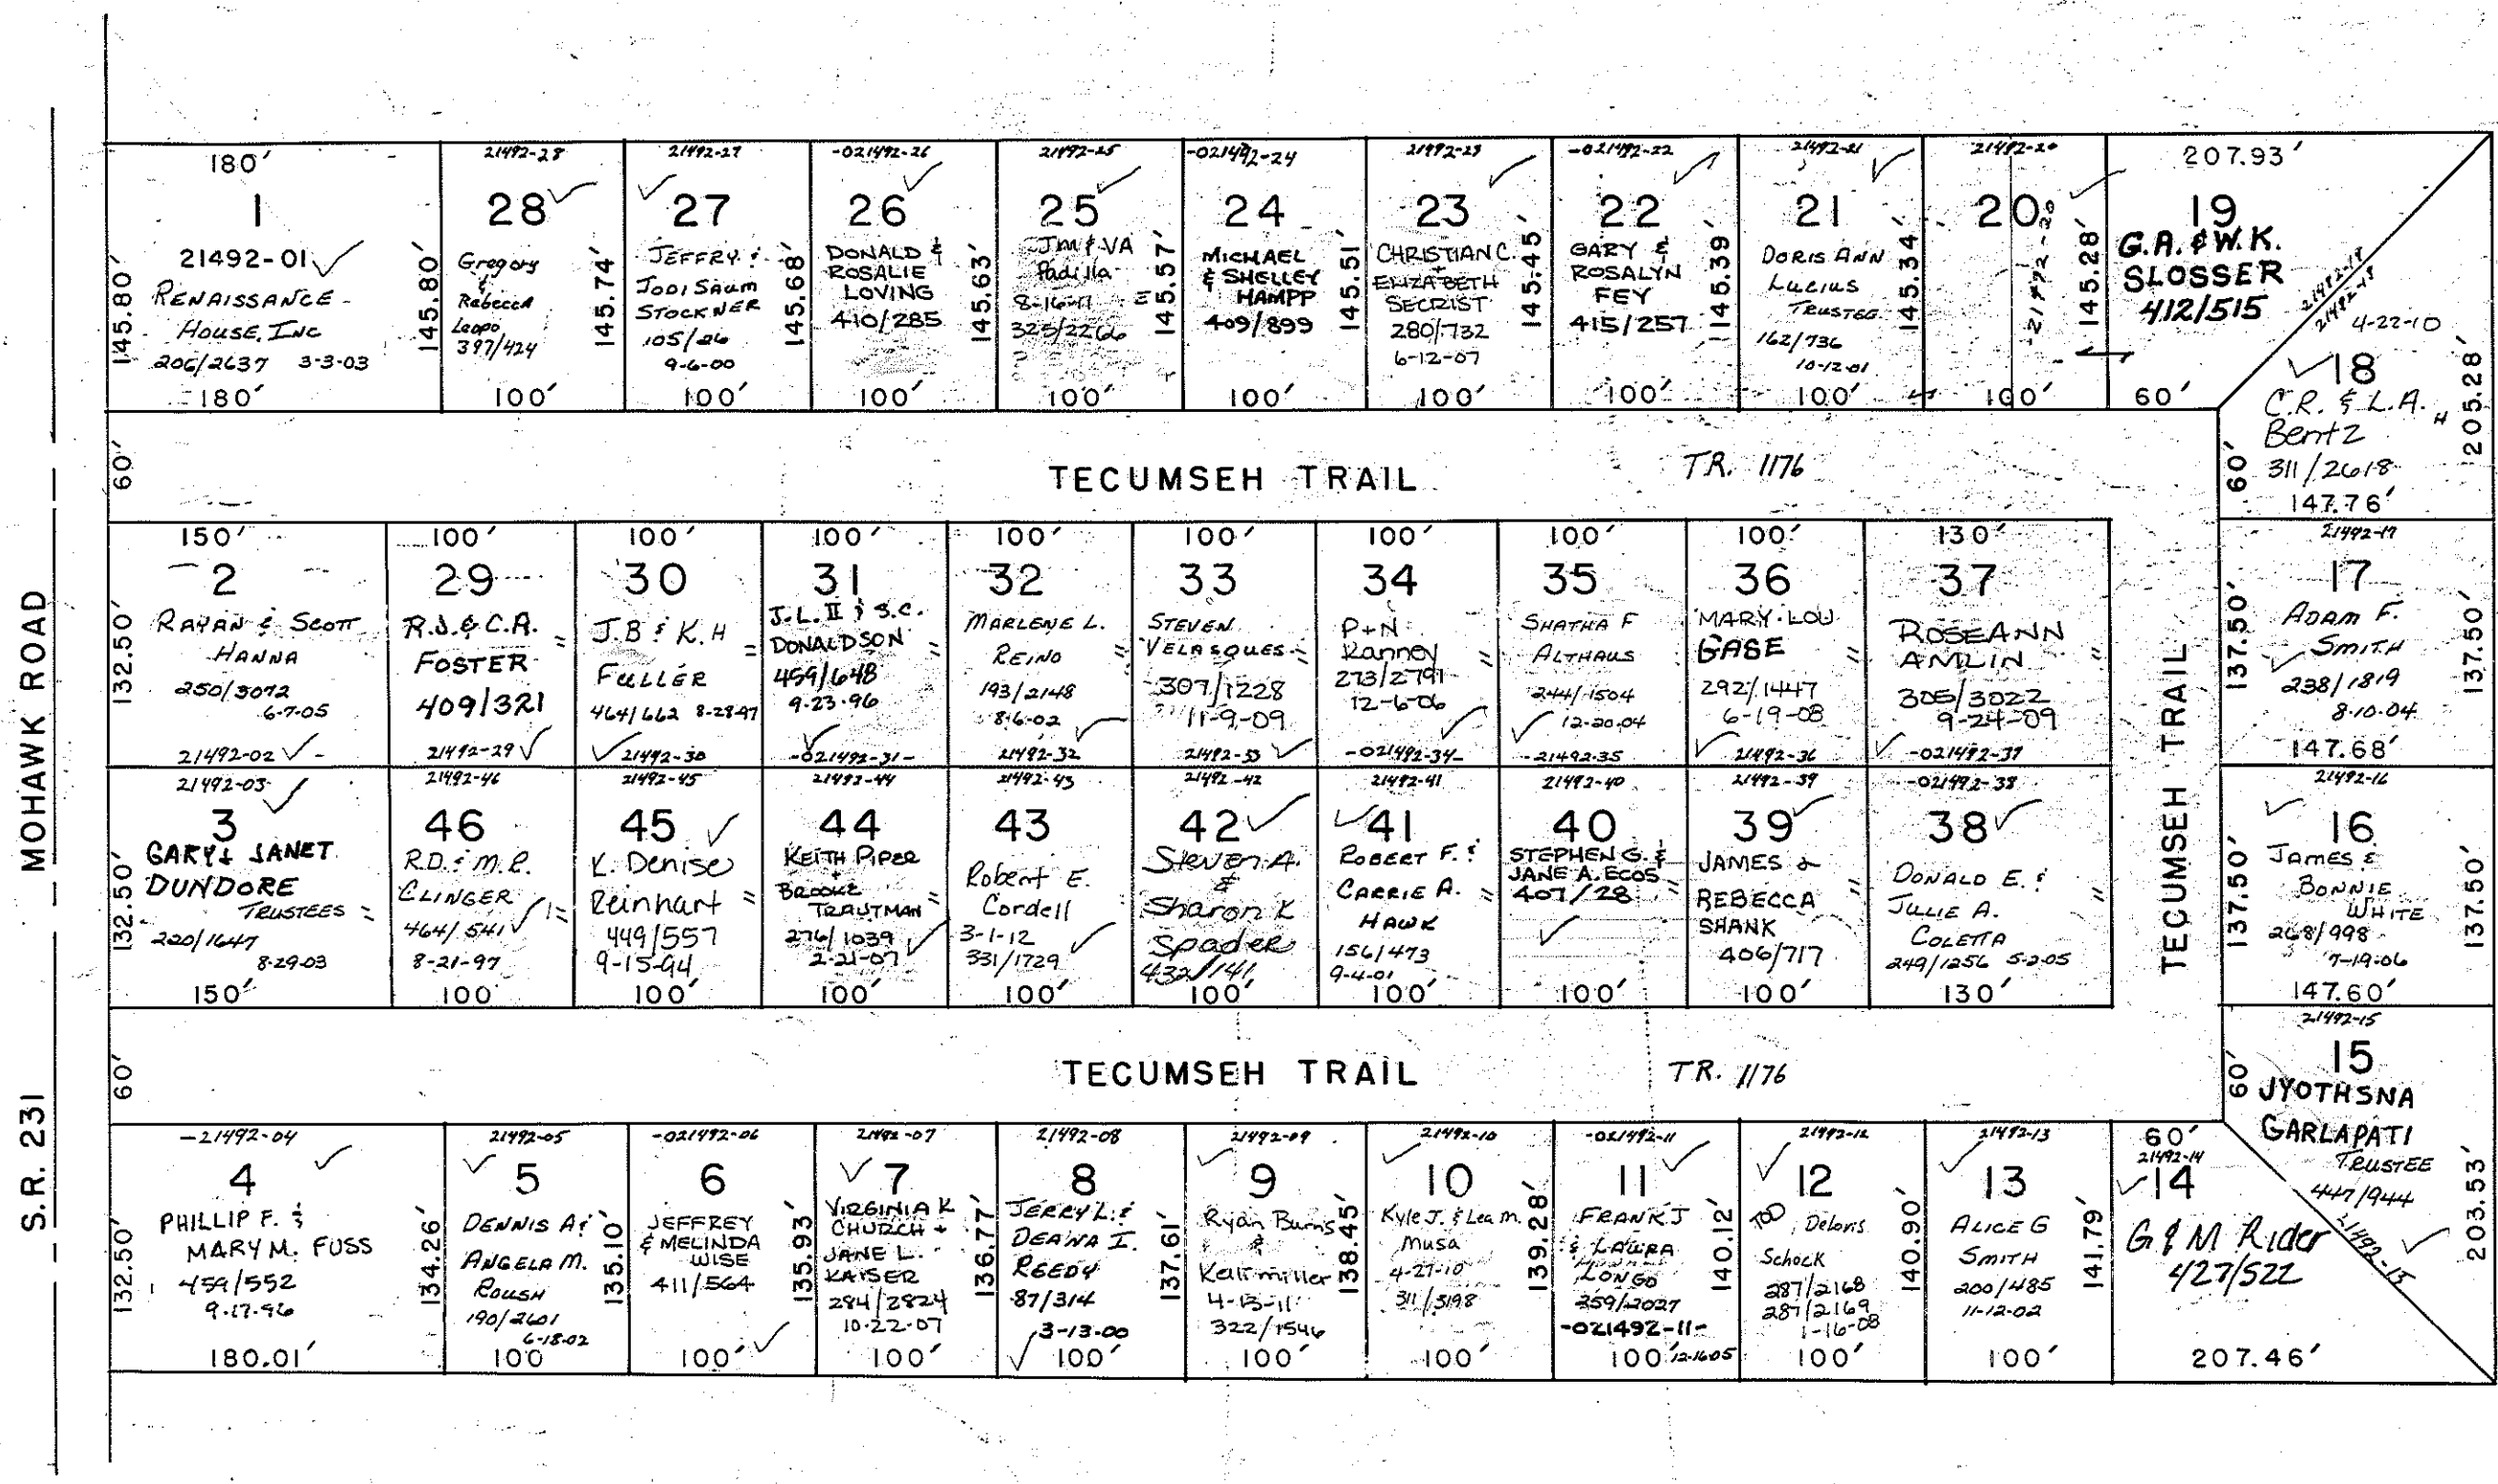 MOHAWK ROAD
S.R. 231
180'
1
21492-01
RENAISSANCE
HOUSE, INC
206/2637 3-3-03
180'
145.80'
145.80'
21492-28
28
Gregory
&
Rebecca
Leopo
397/424
100'
145.74'
21492-27
27
JEFFRY &
JODI SAUM
STOCKNER
105/26
9-6-00
100'
145.68'
-021492-26
26
DONALD &
ROSALIE
LOVING
410/285
100'
145.63'
21492-25
25
JM & VA
Padilla
8-16-11
325/2266
100'
145.57'
-021492-24
24
MICHAEL
& SHELLEY
HAMPP
409/899
100'
145.51'
21492-23
23
CHRISTIAN C.
+
ELIZABETH
SECRIST
280/732
6-12-07
100'
145.45'
-021492-22
22
GARY &
ROSALYN
FEY
415/257
100'
145.39'
21492-21
21
DORIS ANN
LUCIUS
TRUSTEE
162/736
10-12-01
100'
145.34'
21492-20
20
21492-20
100'
145.28'
207.93'
19
G.A. & W.K.
SLOSSER
412/515
60'
21492-19
21492-18
4-22-10
18
C.R. & L.A.
Bentz
311/2618
147.76'
60'
205.28'
60'
TECUMSEH TRAIL
TR. 1176
150'
2
RAYAN & SCOTT
HANNA
250/3072
6-7-05
21492-02
132.50'
100'
29
R.J. & C.A.
FOSTER
409/321
21492-29
100'
30
J.B & K.H
FULLER
464/662 8-28-97
21492-30
100'
31
J.L. II & S.C.
DONALDSON
459/648
9-23-96
-021492-31-
100'
32
MARLENE L.
REINO
193/2148
8-6-02
21492-32
100'
33
STEVEN
VELASQUES
307/1228
11-9-09
21492-33
100'
34
P+N
Ranney
273/2791
12-6-06
-021492-34-
100'
35
SHATHA F
ALTHAUS
244/1504
12-20-04
-21492-35
100'
36
MARY LOU
GASE
292/1447
6-19-08
21492-36
130'
37
ROSEANN
AMLIN
305/3022
9-24-09
-021492-37
TECUMSEH TRAIL
21492-17
17
ADAM F.
SMITH
238/1819
8-10-04
147.68'
137.50'
137.50'
21492-03
3
GARY & JANET
DUNDORE
TRUSTEES
220/1647
8-29-03
150'
132.50'
21492-46
46
R.D. & M.R.
CLINGER
464/541
8-21-97
100'
21492-45
45
K. Denise
Reinhart
449/557
9-15-94
100'
21492-44
44
KEITH PIPER
+
BROOKE
TRAUTMAN
276/1039
2-21-07
100'
21492-43
43
Robert E.
Cordell
3-1-12
331/1729
100'
21492-42
42
Steven A.
&
Sharon K
Spader
432/141
100'
21492-41
41
ROBERT F. &
CARRIE A.
HAWK
156/473
9-4-01
100'
21492-40
40
STEPHEN G. &
JANE A. ECOS
407/28
100'
21492-39
39
JAMES &
REBECCA
SHANK
406/717
100'
-021492-38
38
DONALD E. &
JULIE A.
COLETTA
249/1256 5-2-05
130'
21492-16
16
James &
BONNIE
WHITE
268/998
7-19-06
147.60'
137.50'
137.50'
60'
TECUMSEH TRAIL
TR. 1176
21492-15
15
JYOTHSNA
GARLAPATI
TRUSTEE
447/944
21492-15
60'
203.53'
-21492-04
4
PHILLIP F. &
MARY M. FUSS
459/552
9-17-96
180.01'
132.50'
134.26'
21492-05
5
DENNIS A &
ANGELA M.
ROUSH
190/2601
6-18-02
100
135.10'
-021492-06
6
JEFFREY
& MELINDA
WISE
411/564
100'
135.93'
21492-07
7
VIRGINIA K
CHURCH +
JANE L.
KAISER
284/2824
10-22-07
100'
136.77'
21492-08
8
JERRY L. &
DEANA I.
REEDY
87/314
3-13-00
100'
137.61'
21492-09
9
Ryan Burns
&
Kali miller
4-13-11
322/1546
100'
138.45'
21492-10
10
Kyle J. & Lea M.
Musa
4-27-10
311/5198
100'
139.28'
-021492-11
11
FRANK J
& LAURA
LONGO
259/2027
-021492-11-
100' 12-16-05
140.12'
21492-12
12
TOD Deloris
Schock
287/2168
287/2169
1-16-08
100'
140.90'
21492-13
13
ALICE G
SMITH
200/485
11-12-02
100'
141.79'
60'
21492-14
14
G & M Rider
427/522
207.46'